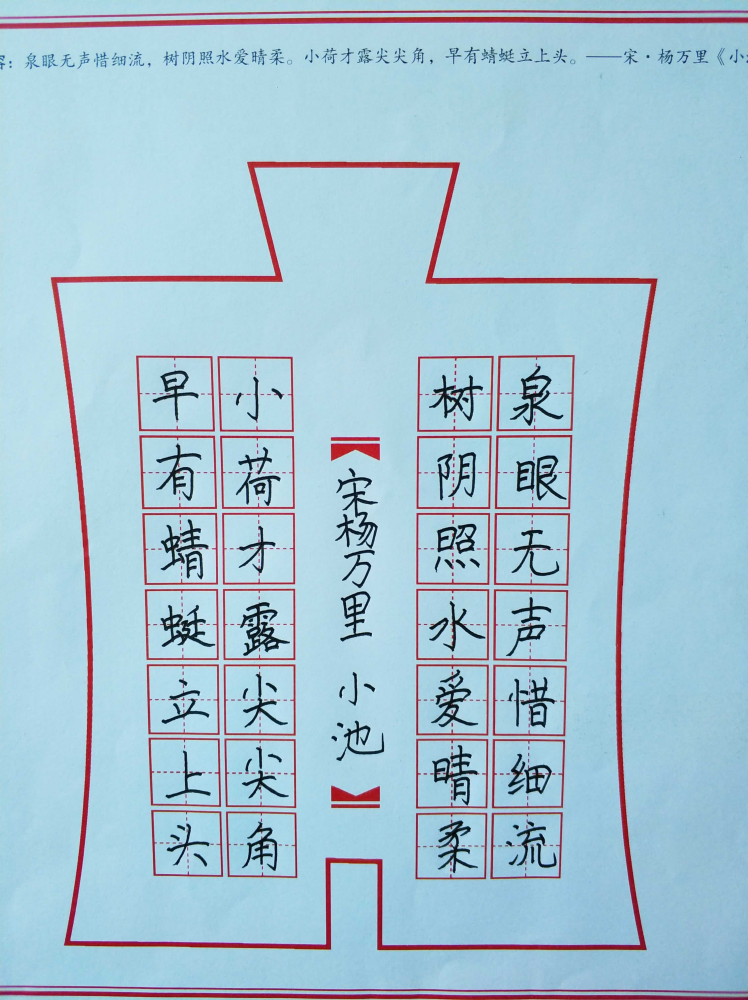 容：泉眼无声惜细流，树阴照水爱晴柔。小荷才露尖尖角，早有蜻蜓立上头。——宋·杨万里《小
泉眼无声惜细流
树阴照水爱晴柔
宋杨万里 小池
小荷才露尖尖角
早有蜻蜓立上头